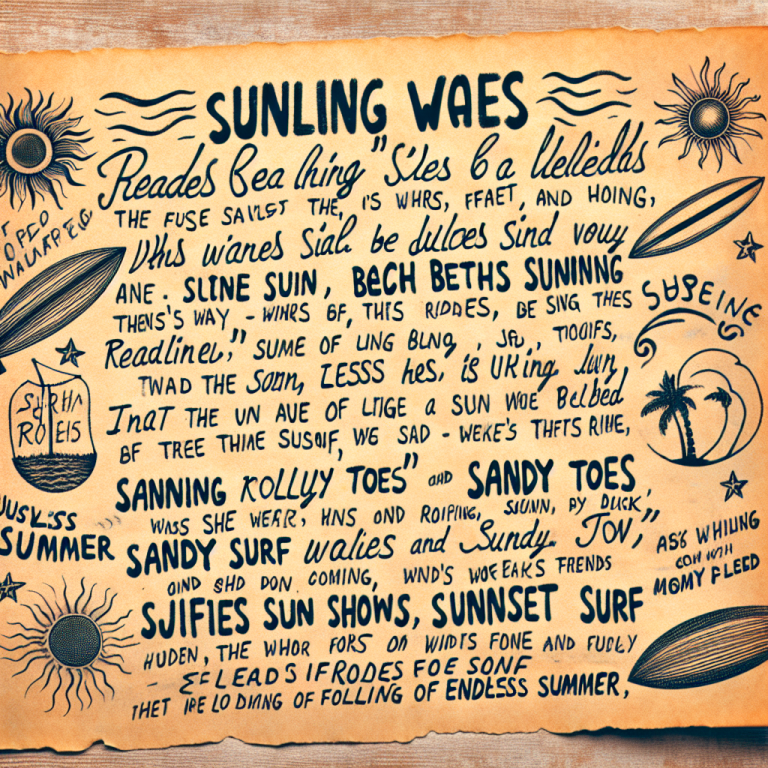 SUNLING WAES
Reades Bea lhing "Sles 6 a Ueliedls
THE FUSE SAVLEST THE, I'S WHRS, FFAET, AND HOING,
Uhs wanes Sial. be dulces Sind vouy
ANE. SLINE SUIN, BECH BETHS SUNINNG
THENS'S WAY - WHRS BF, THTS RIDDES, BE SING THES
Readlineu," SUME OF LING BLING, JR, TIOOIFS,
TWAD THE SOTIN, LESSS hes, is UKing Jun,
INAT THE UN AUE OF LITGE A SUN WOE BELBED
BF TREE THIME SUSOIF, WE SAD - WEKE'S THFTS RIHE,
SANNING KOLLYY TOES" AND SANDY TOES,
WAS SHE WERR, HNS OND ROIPING, SUUNN, PY DUCK,
SANDY SURF walies and Sundy. JOV,"
OIND SHD DON. COMING, WND'S WOFEAKS FRENDS
SJIFIES SUN SHOWS, SUNNSET SURF
HUDEN, THE WHOR FORS OR WIDTS FONE AND FUDLY
- EFLEADS IFRODES FOE SONF
THET IRE LO DING OF FOLLING OF ENDLESS SUMMER,
OPCO
WALARPEG
SURHA
ROEIS
UUSLSS
SUMMER
SUSSEINE
ASS WHILING
CON WITH
MOMY FLEED